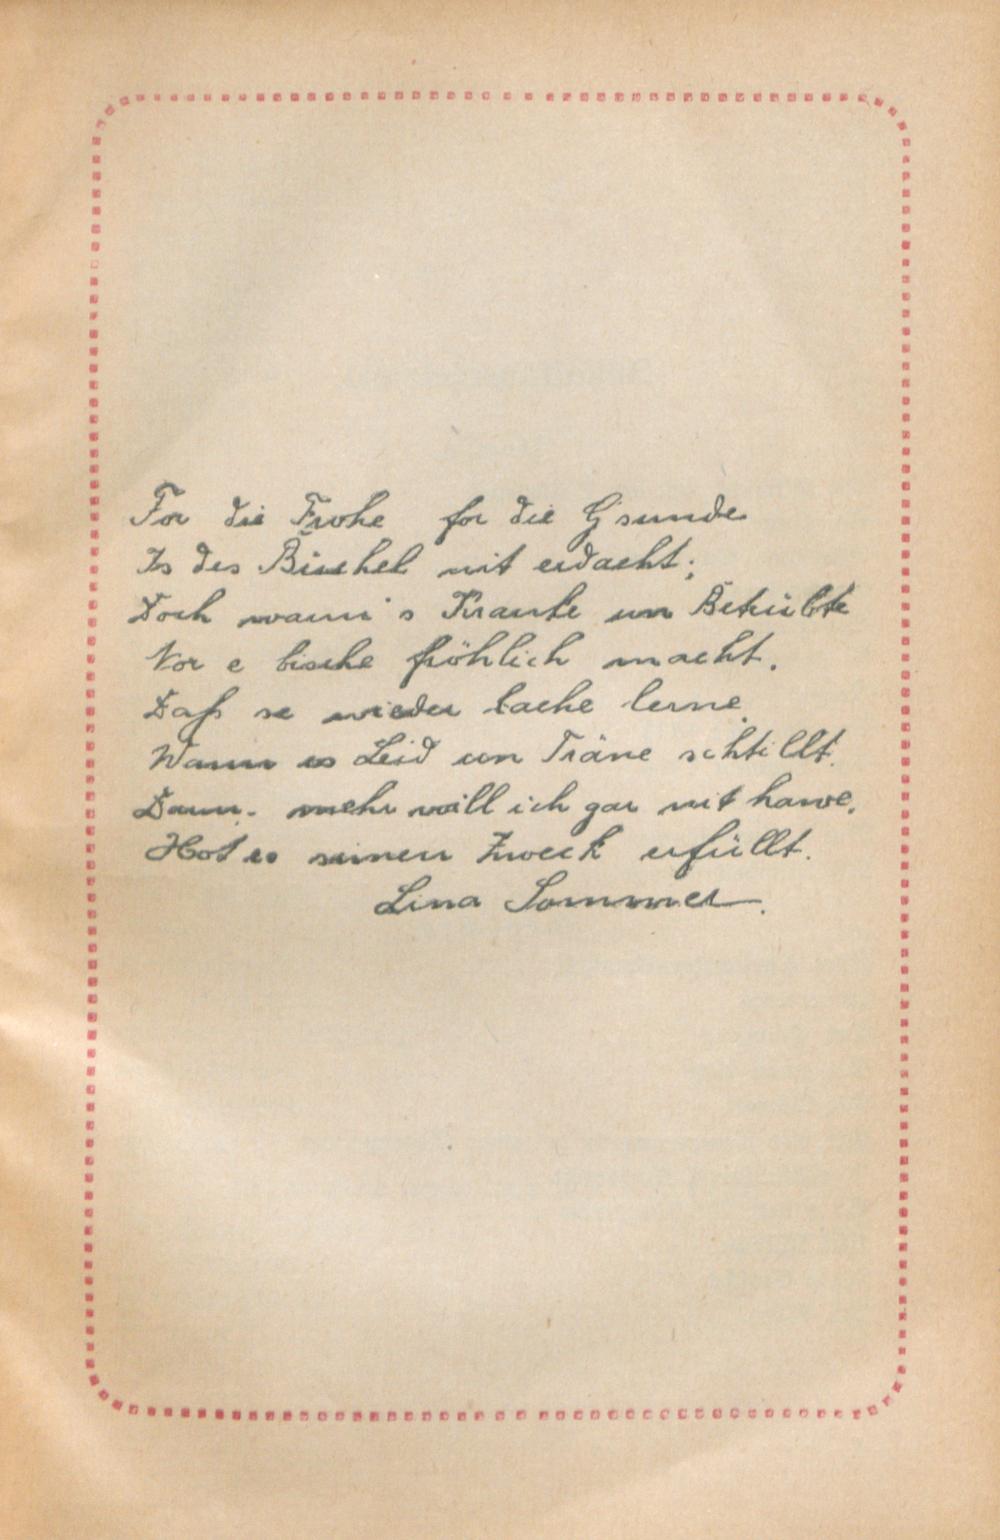 For die Frohe for die Gsunde
Is des Büchel nit erdacht;
Doch wann's Kranke un Betrübte
Nor e bische fröhlich macht.
Daß se wieder lache lerne.
Wann es Leid un Träne schtillt.
Dann. mehr will ich gar nit hawe.
Hot es seinen Zweck erfüllt.
Lina Sommer.